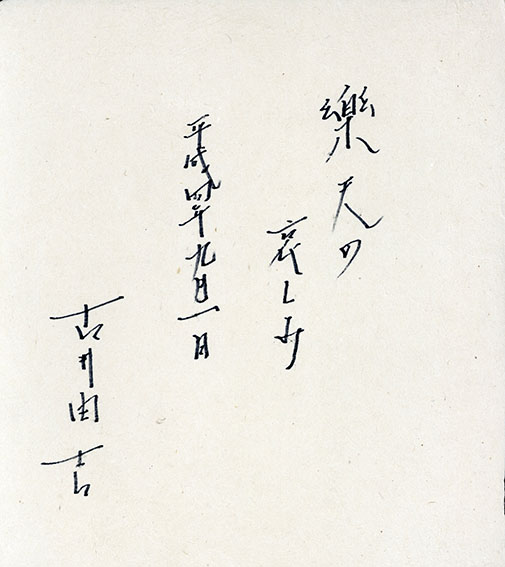 樂天の
哀しみ
平成四年九月一日
古井由吉